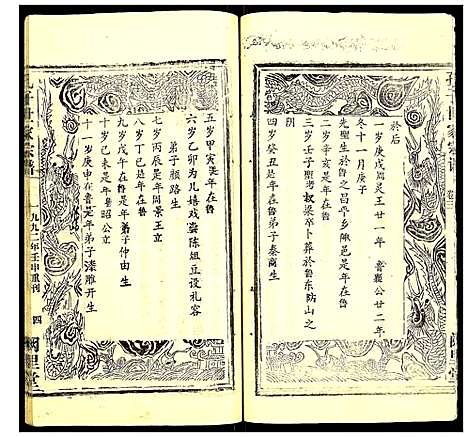 於后
一岁庚戌周灵王廿一年 鲁襄公廿二年
冬十一月庚子
先聖生於鲁之昌平乡陬邑是年在鲁
三岁壬子聖考叔梁卒卜葬於鲁东防山之
阴
四岁癸丑是年在鲁弟子秦商生
五岁甲寅是年在鲁
六岁乙卯为儿嬉戏尝陈俎豆设礼容
弟子颜路生
七岁丙辰是年周景王立
八岁丁巳是年在鲁
九岁戊午在鲁是年弟子仲由生
十岁己未是年鲁昭公立
十一岁庚申在鲁是年弟子漆雕开生
一九九二年壬申重刊
四
阙里堂